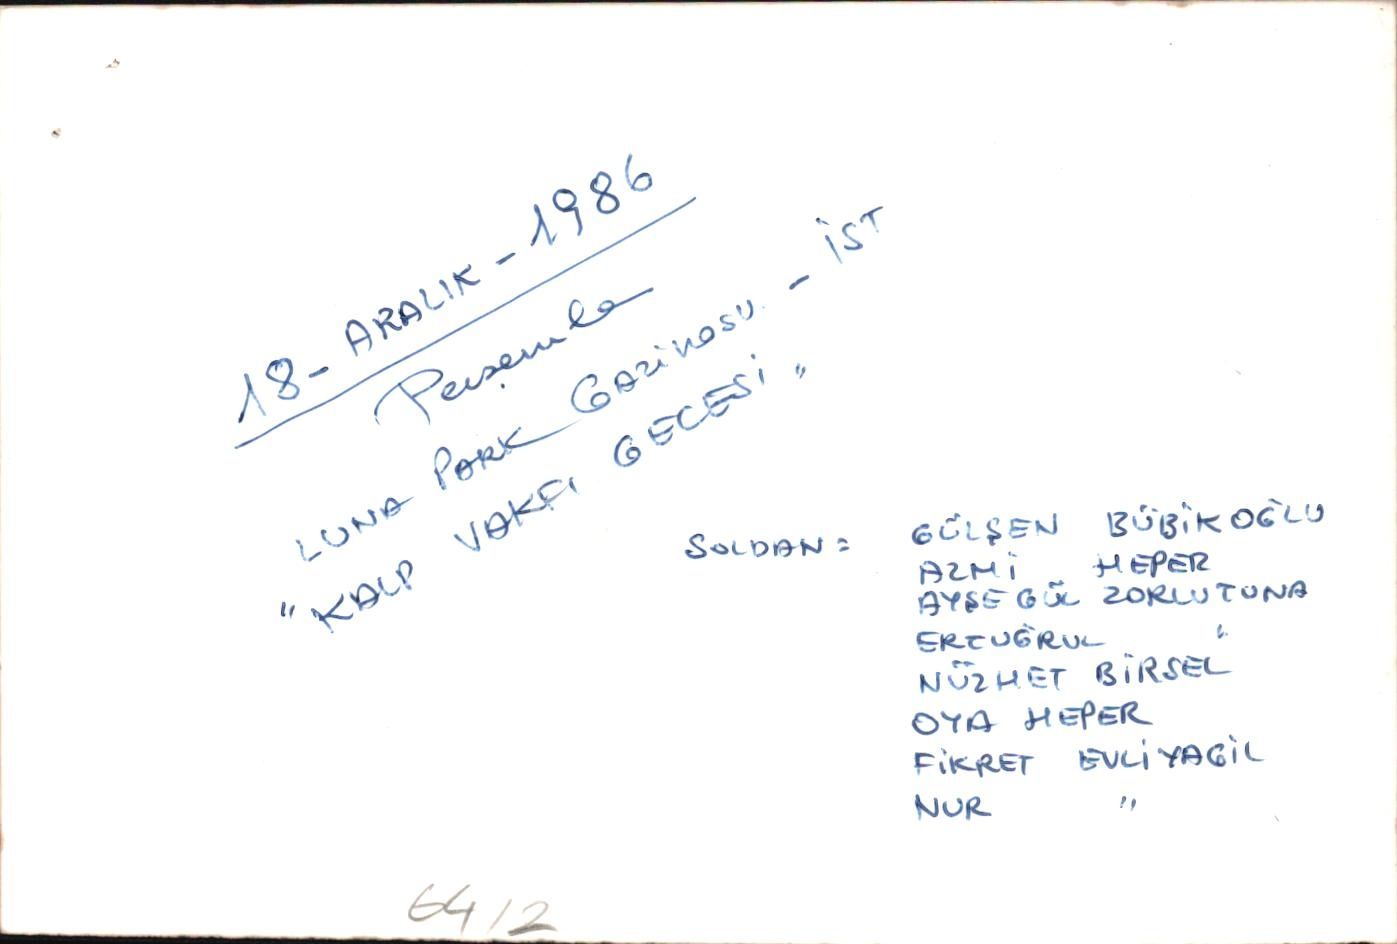 18 - ARALIK - 1986
Perşembe
LUNA PARK GAZİNOSU - İST
"KALP VAKFI GECESİ"
SOLDAN = GÜLŞEN BÜBİKOĞLU
AZMİ HEPER
AYŞEGÜL ZORLUTUNA
ERTUĞRUL "
NÜZHET BİRSEL
OYA HEPER
FİKRET EVLİYAGİL
NUR "
64/2